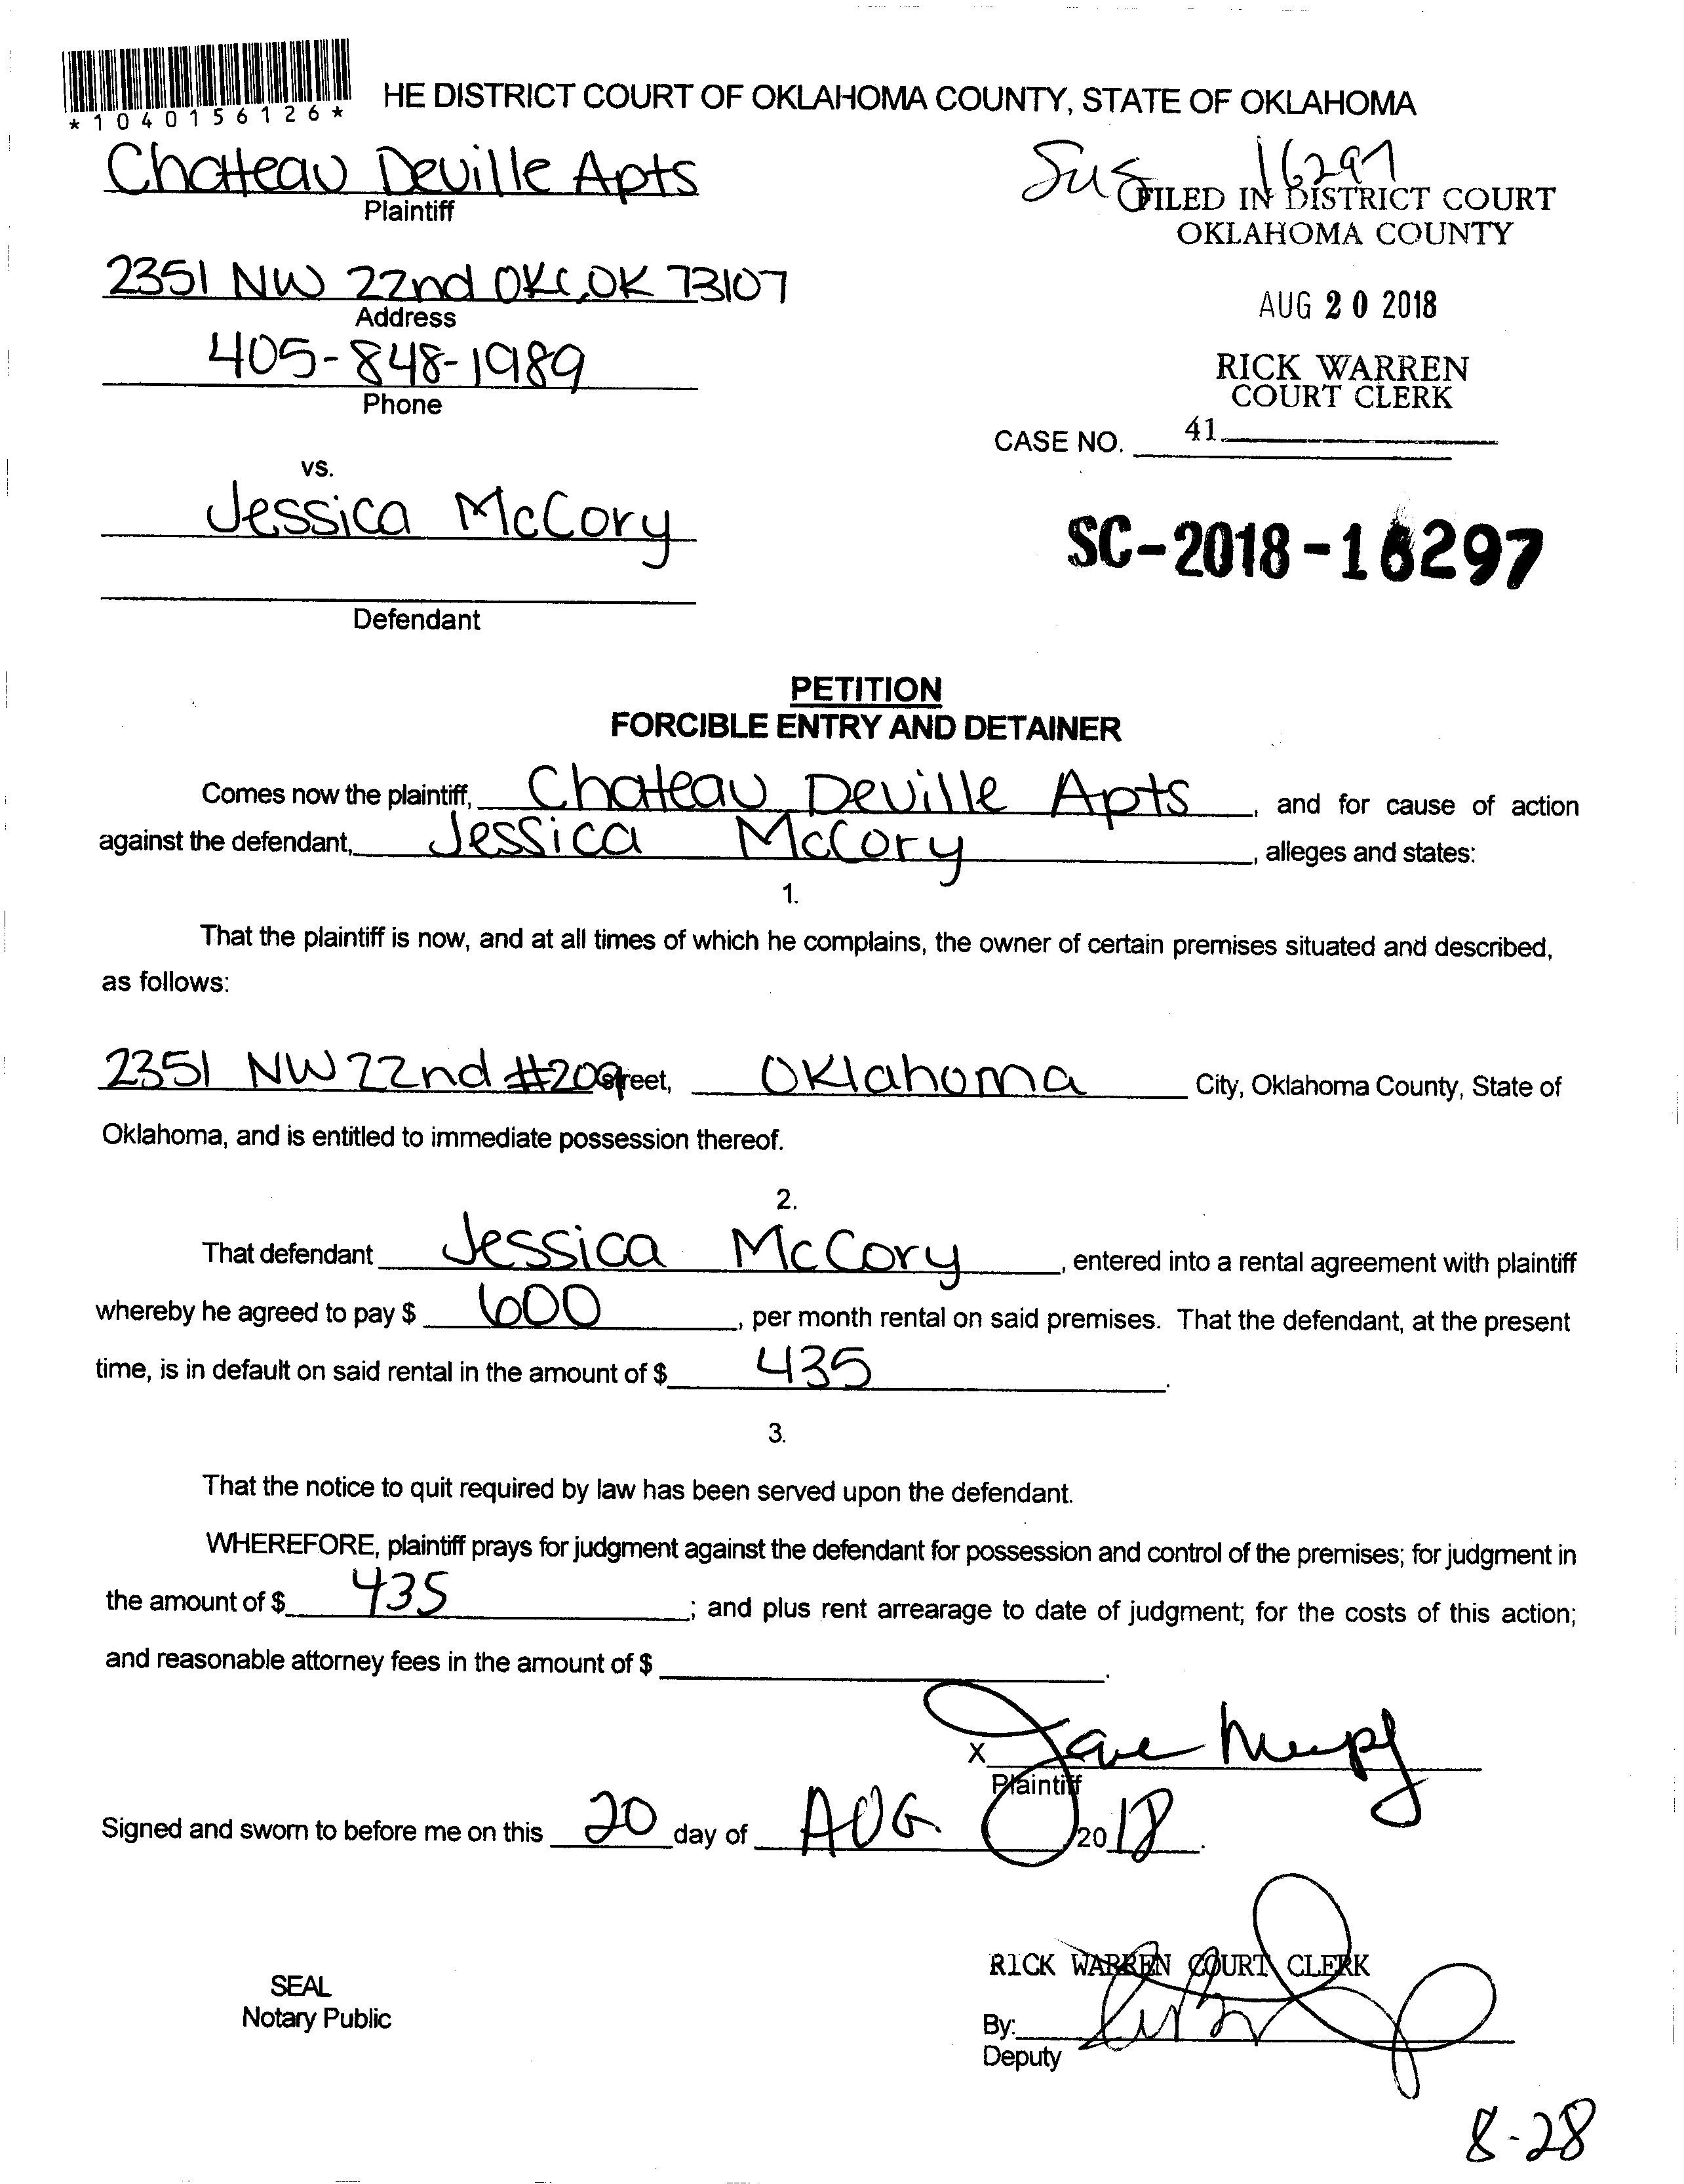 *1040156126*
HE DISTRICT COURT OF OKLAHOMA COUNTY, STATE OF OKLAHOMA
Chateau Deville Apts
Plaintiff
16297
FILED IN DISTRICT COURT
OKLAHOMA COUNTY
2351 NW 22nd OKC, OK 73107
Address
AUG 20 2018
405-848-1989
Phone
RICK WARREN
COURT CLERK
CASE NO. 41
vs.
Jessica McCory
SC-2018-16297
Defendant
PETITION
FORCIBLE ENTRY AND DETAINER
Comes now the plaintiff, Chateau Deville Apts, and for cause of action
against the defendant, Jessica McCory, alleges and states:
1.
That the plaintiff is now, and at all times of which he complains, the owner of certain premises situated and described,
as follows:
2351 NW 22nd #209 street, Oklahoma City, Oklahoma County, State of
Oklahoma, and is entitled to immediate possession thereof.
2.
That defendant Jessica McCory, entered into a rental agreement with plaintiff
whereby he agreed to pay $ 600, per month rental on said premises. That the defendant, at the present
time, is in default on said rental in the amount of $ 435.
3.
That the notice to quit required by law has been served upon the defendant.
WHEREFORE, plaintiff prays for judgment against the defendant for possession and control of the premises; for judgment in
the amount of $ 435; and plus rent arrearage to date of judgment; for the costs of this action;
and reasonable attorney fees in the amount of $ .
X
Plaintiff
Signed and sworn to before me on this 20 day of AUG. 2018.
RICK WARREN COURT CLERK
SEAL
Notary Public
By:
Deputy
8-28